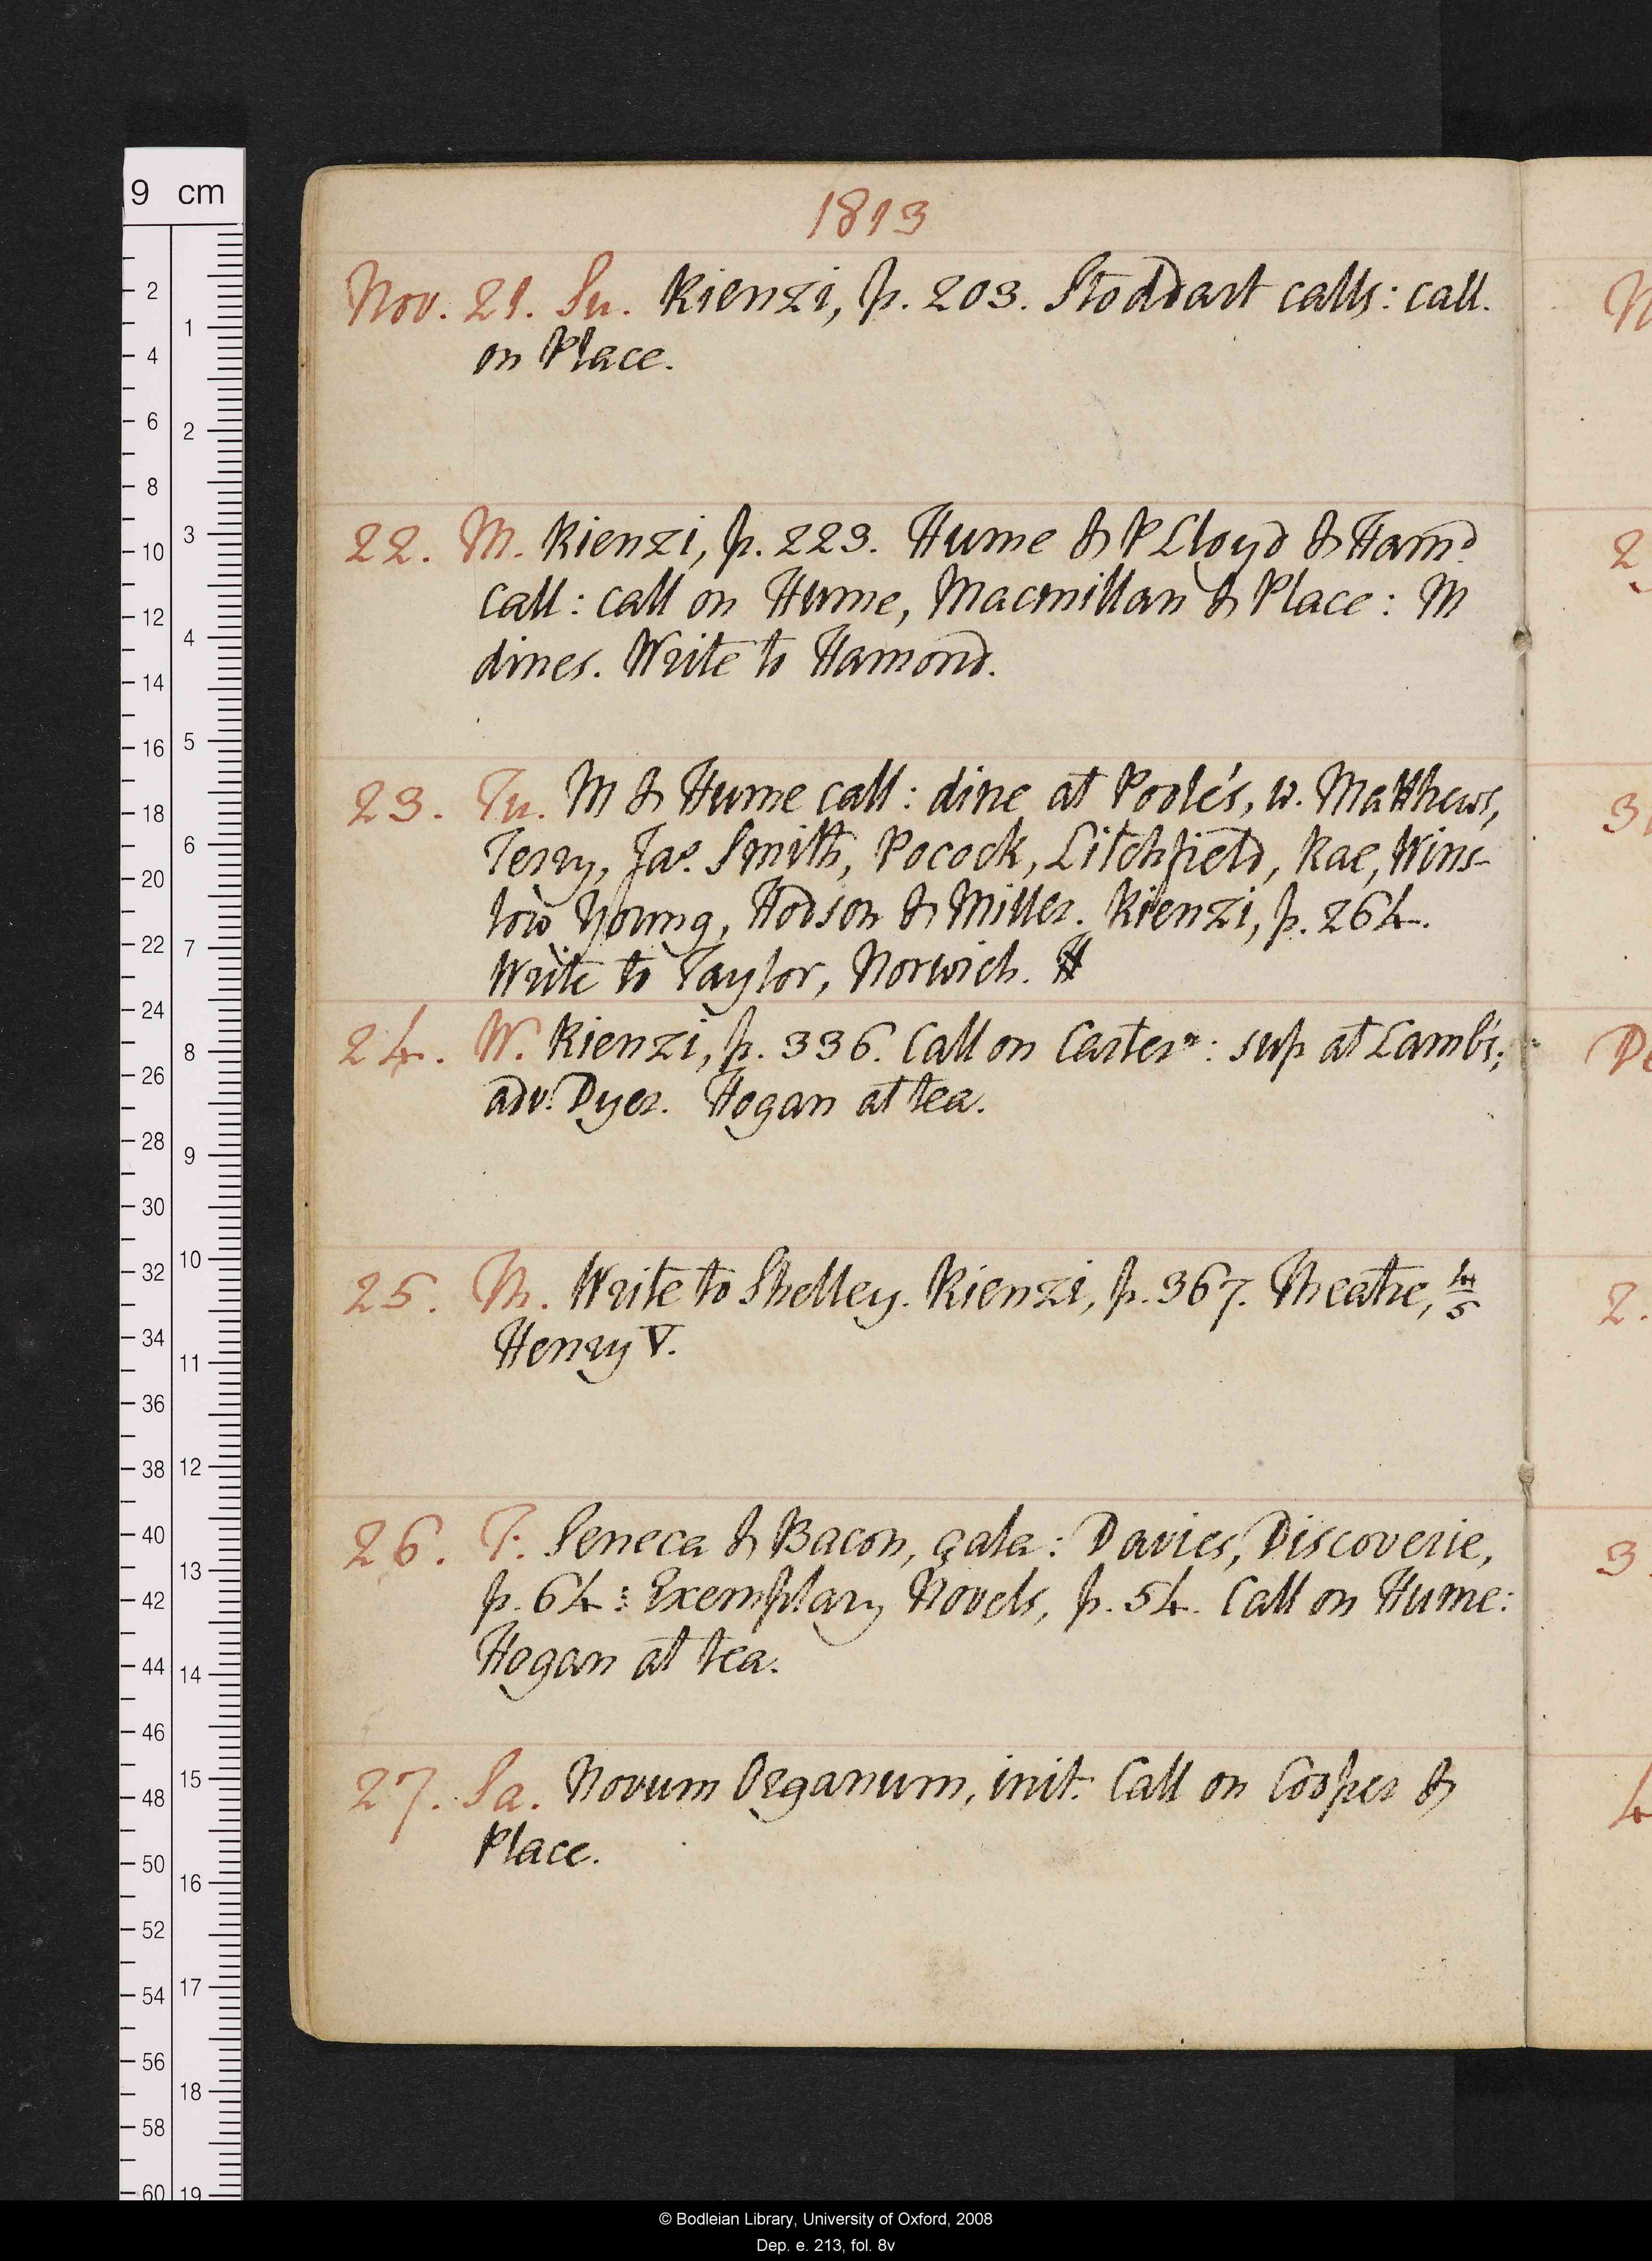 1813
Nov. 21. Su. Rienzi, p. 203. Stoddart calls: call
on Place.
22. M. Rienzi, p. 223. Hume & P Lloyd & Hamd
call: call on Hume, Macmillan & Place: M
dines. Write to Hamond.
23. Tu. M & Hume call: dine at Poole's, w. Matthews,
Terry, Jas. Smith, Pocock, Litchfield, Rae, Wins-
low Young, Hodson & Miller. Rienzi, p. 264.
Write to Taylor, Norwich.
24. W. Rienzi, p. 336. Call on Carter: sup at Lamb's;
adv. Dyer. Hogan at tea.
25. Th. Write to Shelley. Rienzi, p. 367. Theatre, 4/5
Henry V.
26. F. Seneca & Bacon, çala: Davies, Discoverie,
p. 64: Exemplary Novels, p. 54. Call on Hume:
Hogan at tea.
27. Sa. Novum Organum, init. Call on Cooper &
Place.
9 cm
© Bodleian Library, University of Oxford, 2008
Dep. e. 213, fol. 8v